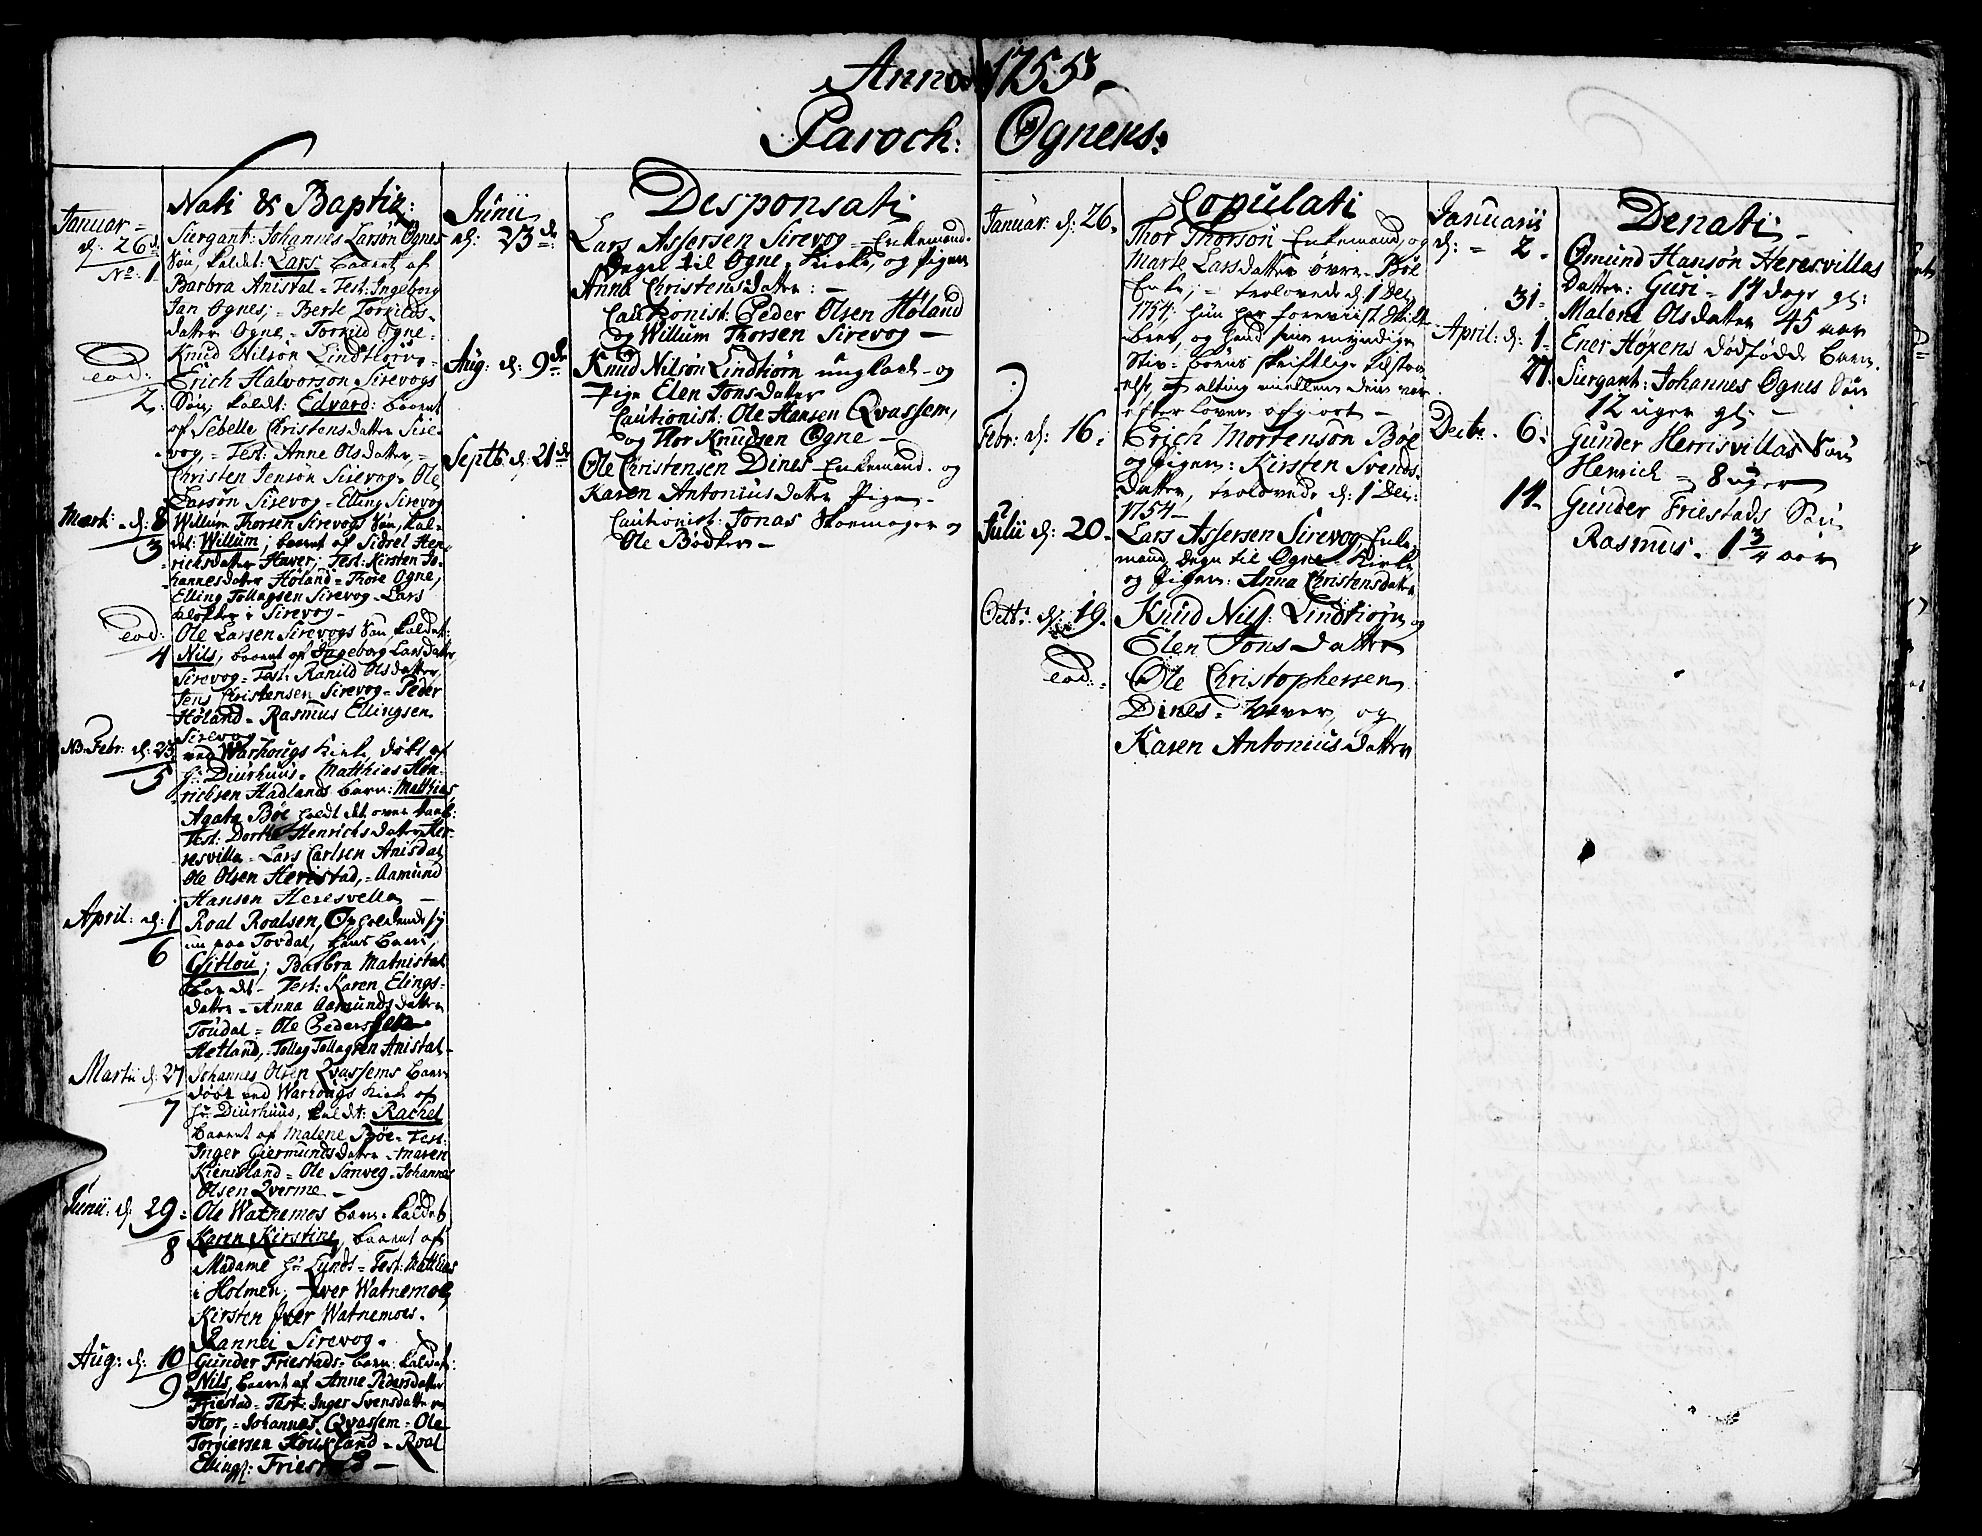 Anno 1755
Paroch: Ognens:
Nati & Baptiz:
Januar
d: 26d.
No: 1
Siergant: Johannes Larsön Ognes
Søn, kaldt: Lars baaret af
Barbra Anistal = Test: Ingeborg
Jan Ognes; = Berte Torkilds=
datter Ogne = Torkild Ogne =
Knud Nilsön Lindtiorn =
eod:
2.
Erich Halvorson Sirevogs
Søn, kaldt: Edvard: baaret
af Sebelle Christensdatter Sire=
vog, = Test: Anne Olsdatter, =
Christen Jensön Sirevog = Ole
Larsön Sirevog = Elling Sirevog
Marti d: 8
3
Willum Thorsen Sirevogs Søn, kal=
det: Willum; baaret af Sidsel Hen=
ricksdatter Haver, Test: Kirsten Jo=
hannesdatter Høland = Thore Ogne,
Elling Tollagsen Sirevog = Lars
Klokker i Sirevog =
eod:
4
Ole Larsen Sirevogs Søn kaldet:
Nils, baaret af Ingeborg Larsdatter
Sirevog = Test: Ranild Olsdatter,
Jens Christensen Sirevog = Peder
Høland = Rasmus Ellingsen
Sirevog =
NB. Febr: d: 23
5
ved Warhougs Kirke døbt af
Hr: Diurhuus. Matthias Hen=
richsen Hadlands barn: Matthias,
Agata Bøe holdt det over daab:
Test: Dorthe Henrichsdatter Her=
resvilla = Lars Carlsen Anisdal
Ole Olsen Herristad, = Aamund
Hansen Heresvella =
April: d: 1
6
Roal Roalsen, Opholdende sig
nu paa Tovdal, hans barn,
Gitlou; Barbra Matnistal
bar det = Test: Karen Elings=
datter = Anna Aamundsdatter
Toudal = Ole Pedersen
Hetland, = Tollag Tollagsen Anistal =
Martii d: 27
7
Johannes Olsen Qvassems barn
døbt ved Warhougs Kirke af
Hr: Diurhuus, kaldt: Rachel
baaret af Malene Bøe = Test:
Inger Giermundsdatter = Maren
Kiensland = Ole Sonveg = Johannes
Olsen Qverme =
Junii: d: 29 =
8
Ole Watnemos barn = kaldet
Karen Kirstine, baaret af
Madame Hr: Lynds = Test: Matthias
i Holmen, Iver Watnemoe,
Kirsten Iver Watnemoes.
Rannei Sirevog =
Aug: d: 10
9
Gunder Friestads = barn: kaldet:
Nils, baaret af Anne Pedersdatter
Friestad = Test: Inger Svensdatter
Hor, = Johannes Qvassem = Ole
Torgiersen Houkland = Roal
Ellings: Friestad =
Desponsati
Junii
d: 23de
Lars Assersen Sirevog = Enkemand
Degn til Ogne = Kirke, og Pigen
Anna Christensdatter: =
Cautionist: Peder Olsen Høland
og Willum Thorsen Sirevog =
Aug: d: 9de
Knud Nilsön Lindtiørn ungkarl = og
Pige Elen Jonsdatter
Cautionist: Ole Hansen Qvassem,
og Thor Knudsen Ogne =
Septb. d: 21de
Ole Christensen Dines Enkemand. og
Karen Antoniusdatter Pige =
Cautionist: Jonas Skoemager og
Ole Bødker =
Copulati
Januar: d: 26.
Thor Thorsön Enkemand, og
Marte Larsdatter övre = Bøe
Enke, = trolovede d: 1 Dec:
1754: hun har foreviist Skifte
brev, og hendes myndige
Stiv = börns skriftlig tilstaa
else, at alting mellem dem var
efter loven afgiort =
Febr: d: 16 =
Erich Mortensön Bøe
og Pigen: Kirsten Svends
datter, trolovede d: 1 Dec:
1754 =
Julii d: 20.
Lars Assersen Sirevog, Enke
mand, Degn til Ogne = Kirke
og Pigen: Anna Christensdatter
Octb: d: 19.
Knud Nils: Lindtiørn og
Elen Jons datter
eod:
Ole Christophersen
Dines = Wever, og
Karen Antoniusdatter
Denati =
Januarii
d: = 2.
Omund Hansön Heresvillas
datter: Guri = 14 dage gl:
31.
Malena Olsdatter 45 aar
April: d: 1.
Ener Høyens dödfödde barn.
21.
Siergant: Johannes Ognes Søn
12 uger gl: =
Decbr. 6:
Gunder Herrisvillas Søn
Henrich = 8 uger
14.
Gunder Friestads Søn
Rasmus. 1 3/4 aar